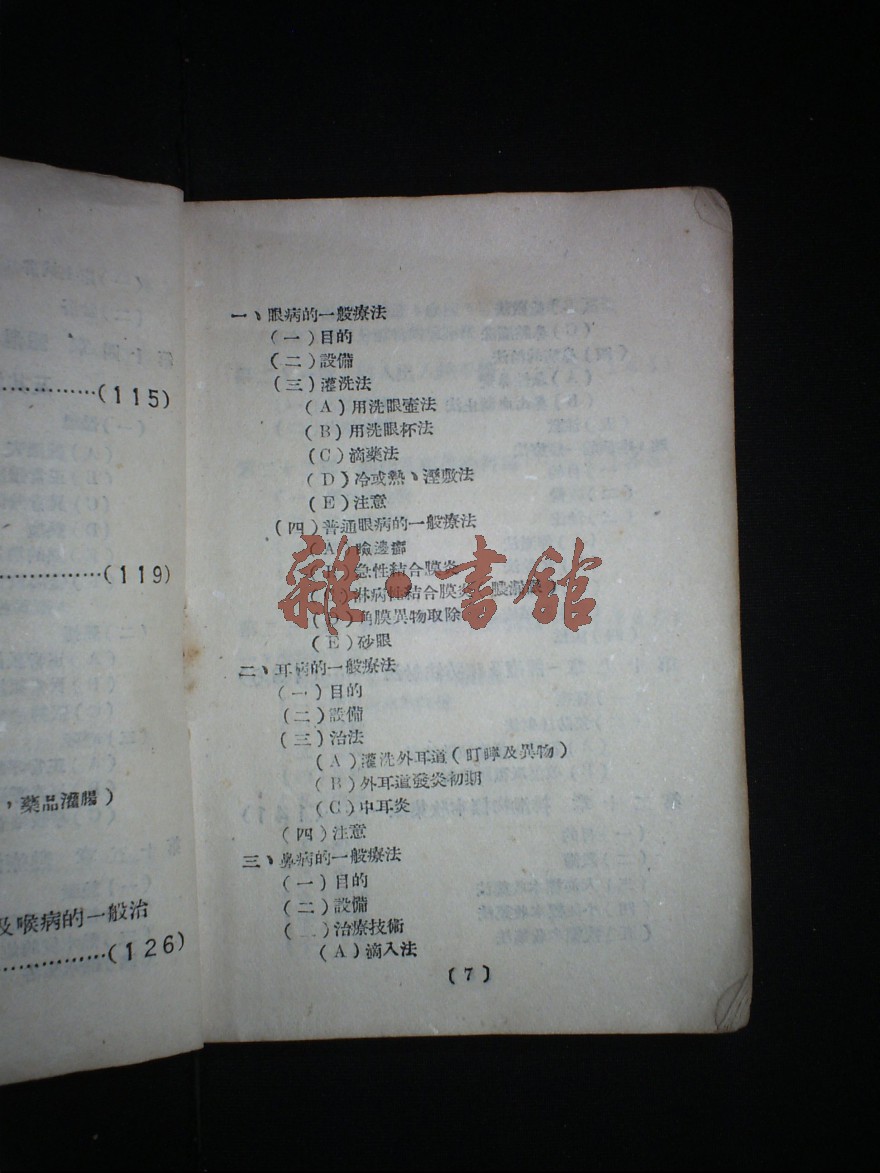 ……………(115)
………………(119)
，藥品灌腸）
及喉病的一般治
………………(126)
一、眼病的一般療法
（一）目的
（二）設備
（三）灌洗法
（A）用洗眼壺法
（B）用洗眼杯法
（C）滴藥法
（D）冷或熱、溼敷法
（E）注意
（四）普通眼病的一般療法
（A）瞼邊
急性結合膜炎
淋病性結合膜炎
角膜異物取除
（E）砂眼
二、耳病的一般療法
（一）目的
（二）設備
（三）治法
（A）灌洗外耳道（耵聹及異物）
（B）外耳道發炎初期
（C）中耳炎
（四）注意
三、鼻病的一般療法
（一）目的
（二）設備
（二）治療技術
（A）滴入法
〔7〕
雜·書館